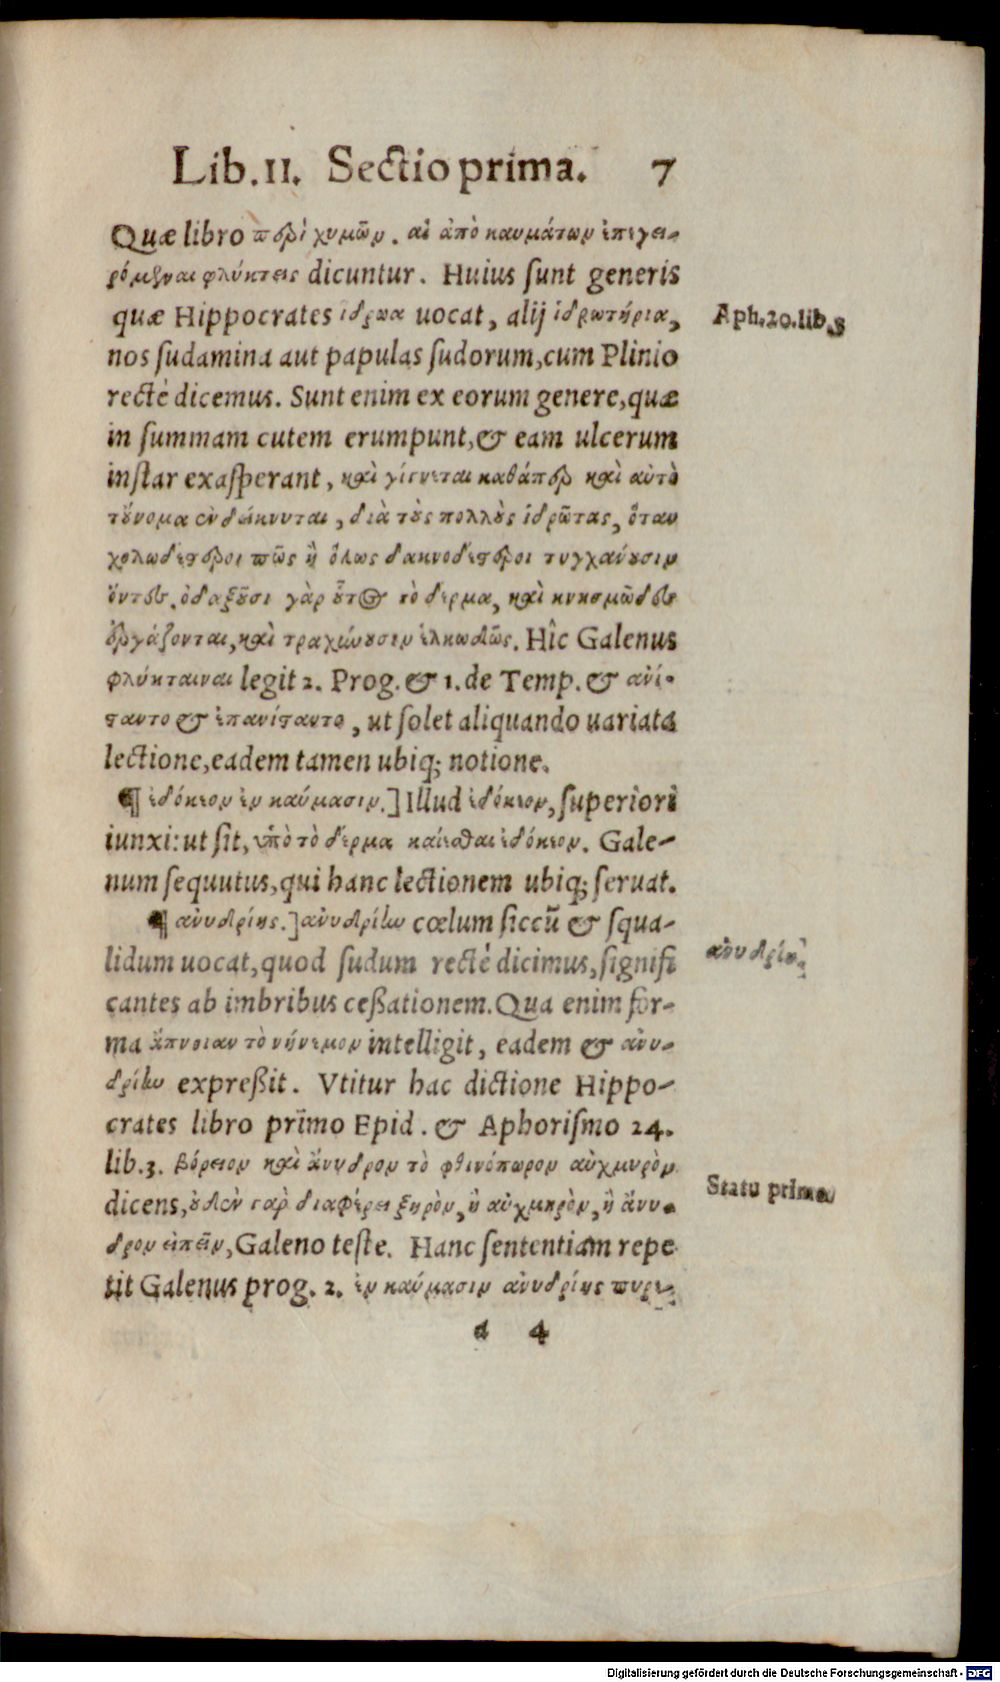 Lib. II. Sectio prima. 7
Quæ libro περὶ χυμῶν. αἱ ἀπὸ καυμάτων ἐπιγει-
ρόμεναι φλύκτεις dicuntur. Huius ſunt generis
quæ Hippocrates ἱδρωα uocat, alij ἱδρωτήρια,
Aph. 20. lib. 3
nos ſudamina aut papulas ſudorum, cum Plinio
recté dicemus. Sunt enim ex eorum genere, quæ
in ſummam cutem erumpunt, & eam ulcerum
inſtar exaſperant, καὶ γίγνεται καθάπερ καὶ αὐτὸ
τοὔνομα ἐνδείκνυται, διὰ τοὺς πολλοὺς ἱδρῶτας, ὅταν
χολωδέστεροι πῶς ἢ ὅλως δακνοδέστεροι τυγχάνουσιν
ὄντες. ὀδαξοῦσι γὰρ οὗτοι τὸ δέρμα, καὶ κνησμώδες
ἐργάζονται, καὶ τραχύνουσιν ἑλκωδῶς. Hîc Galenus
φλύκταιναι legit 2. Prog. & 1. de Temp. & ἀνί-
σταντο & ἐπανίσταντο, ut ſolet aliquando uariata
lectione, eadem tamen ubiq; notione.
¶ ἐδόκεον ἐν καύμασιν.] Illud ἐδόκεον, ſuperiori
iunxi: ut ſit, ὑπὸ τὸ δέρμα καίεσθαι ἐδόκεον. Gale-
num ſequutus, qui hanc lectionem ubiq; ſeruat.
¶ ἀνυδρίης.] ἀνυδρίην cœlum ſiccū & ſqua-
lidum uocat, quod ſudum recté dicimus, ſignifi
ἀνυδρίη.
cantes ab imbribus ceßationem. Qua enim for-
ma ἄπνοιαν τὸ νήνεμον intelligit, eadem & ἀνυ-
δρίην expreßit. Vtitur hac dictione Hippo-
crates libro primo Epid. & Aphoriſmo 24.
lib. 3. βόρειον καὶ ἄνυδρον τὸ φθινόπωρον αὐχμυρὸν
Statu primo
dicens, οὐδὲν γαρ διαφέρει ξηρὸν, ἢ αὐχμηρὸν, ἢ ἄνυ-
δρον εἰπεῖν, Galeno teſte. Hanc ſententiam repe
tit Galenus prog. 2. ἐν καύμασιν ἀνυδρίης πυρε-
d 4
Digitalisierung gefördert durch die Deutsche Forschungsgemeinschaft - DFG